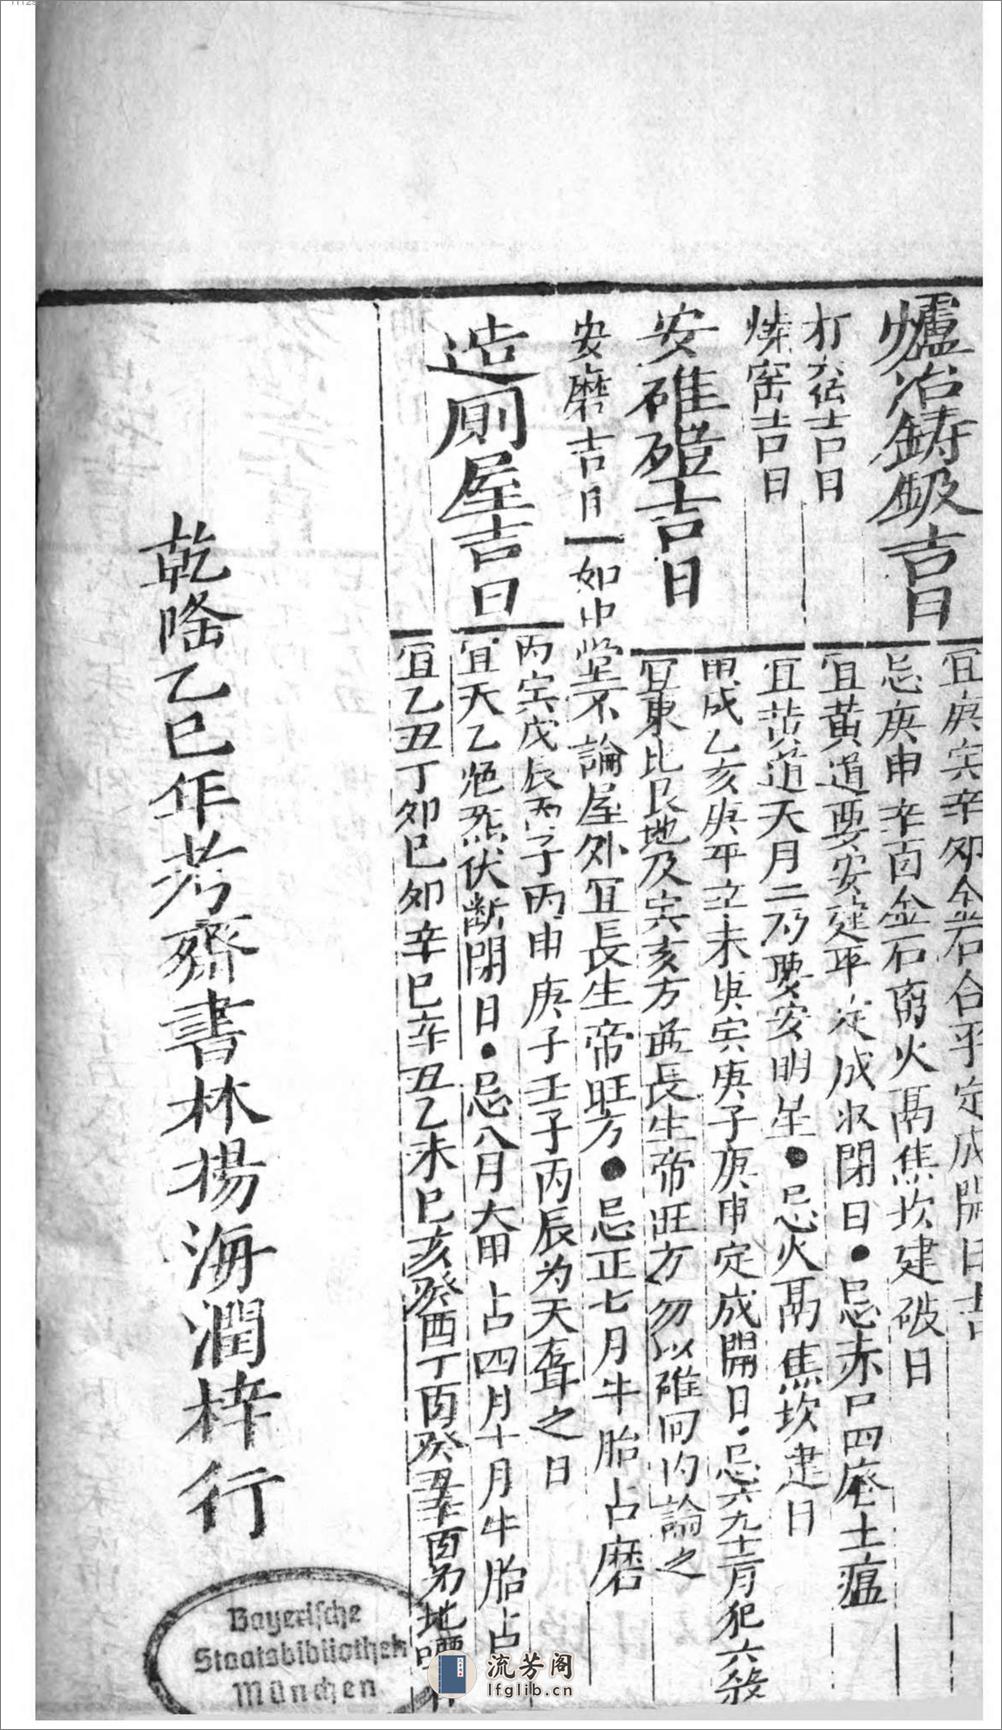 爐冶鋳鈒吉日
宜庚寅辛夘金石合平定成開日吉
忌庚申辛酉金石离火鬲焦坎建破日
打穴吉日
宜黄道要安建平定成收閉日●忌赤口四廢土瘟
燒窑吉日
宜黄道天月二乃要安明星●忌火鬲焦坎建日
安碓磑吉日
甲戌乙亥庚平立未庚寅庚子庚申定成開日●忌六九十二月犯六殺
宜東北艮地及寅亥方並長生帝旺方勿以碓向内論之
安磨吉日
如中堂不論屋外宜長生帝旺方●忌正七月牛胎占磨
造厠屋吉日
丙寅戊辰丙子丙申庚子壬子丙辰为天聾之日
宜天乙絕炁伏断閉日●忌八月六甲占四月十月牛胎占
宜乙丑丁夘巳夘辛巳辛丑乙未巳亥癸酉丁酉癸丑辛酉为地啞
乾隆乙巳年芳齋書林楊海潤梓行
Bayerische
Staatsbibliothek
München
流芳阁
lfglib.cn